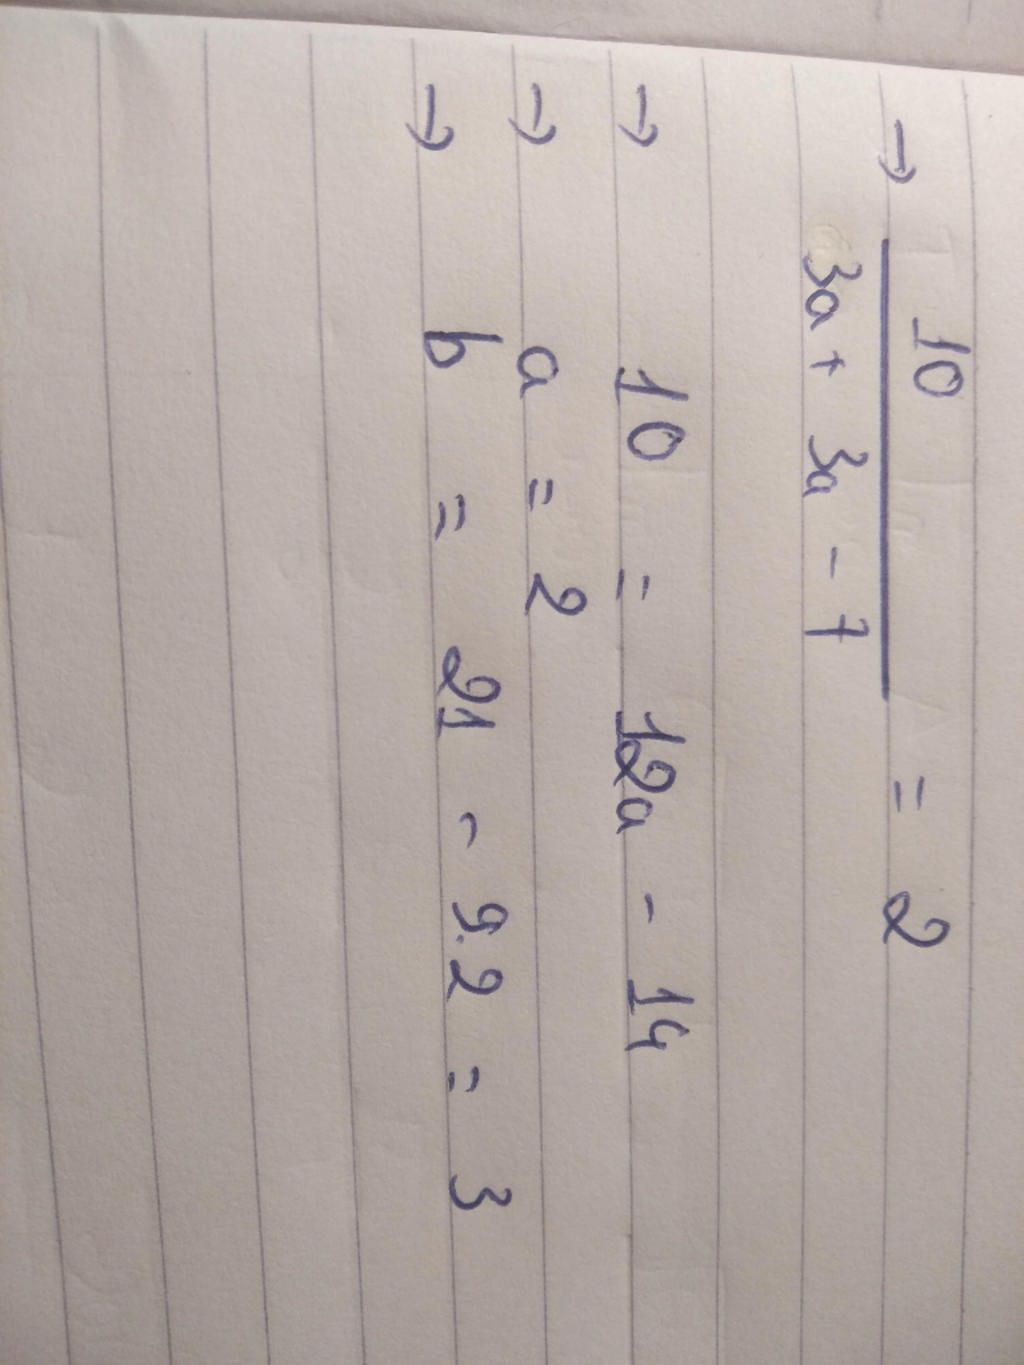 → 10
3a + 3a - 7 = 2
→ 10 = 12a - 14
→ a = 2
→ b = 21 - 9.2 = 3